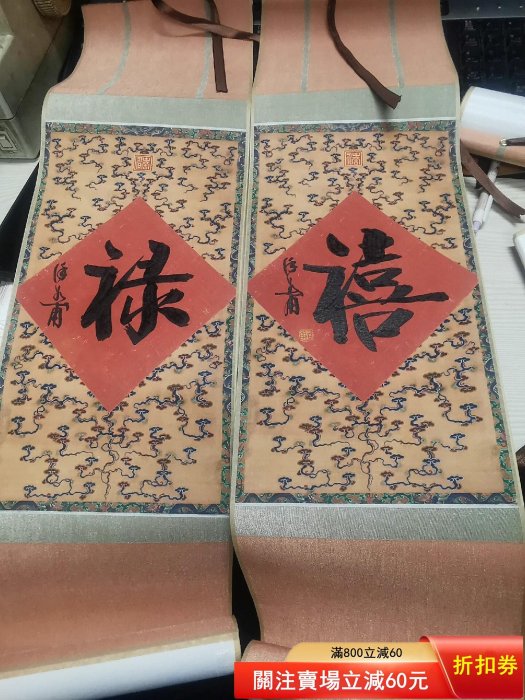 禄
禧
滿800立減60
關注賣場立減60元
折扣券